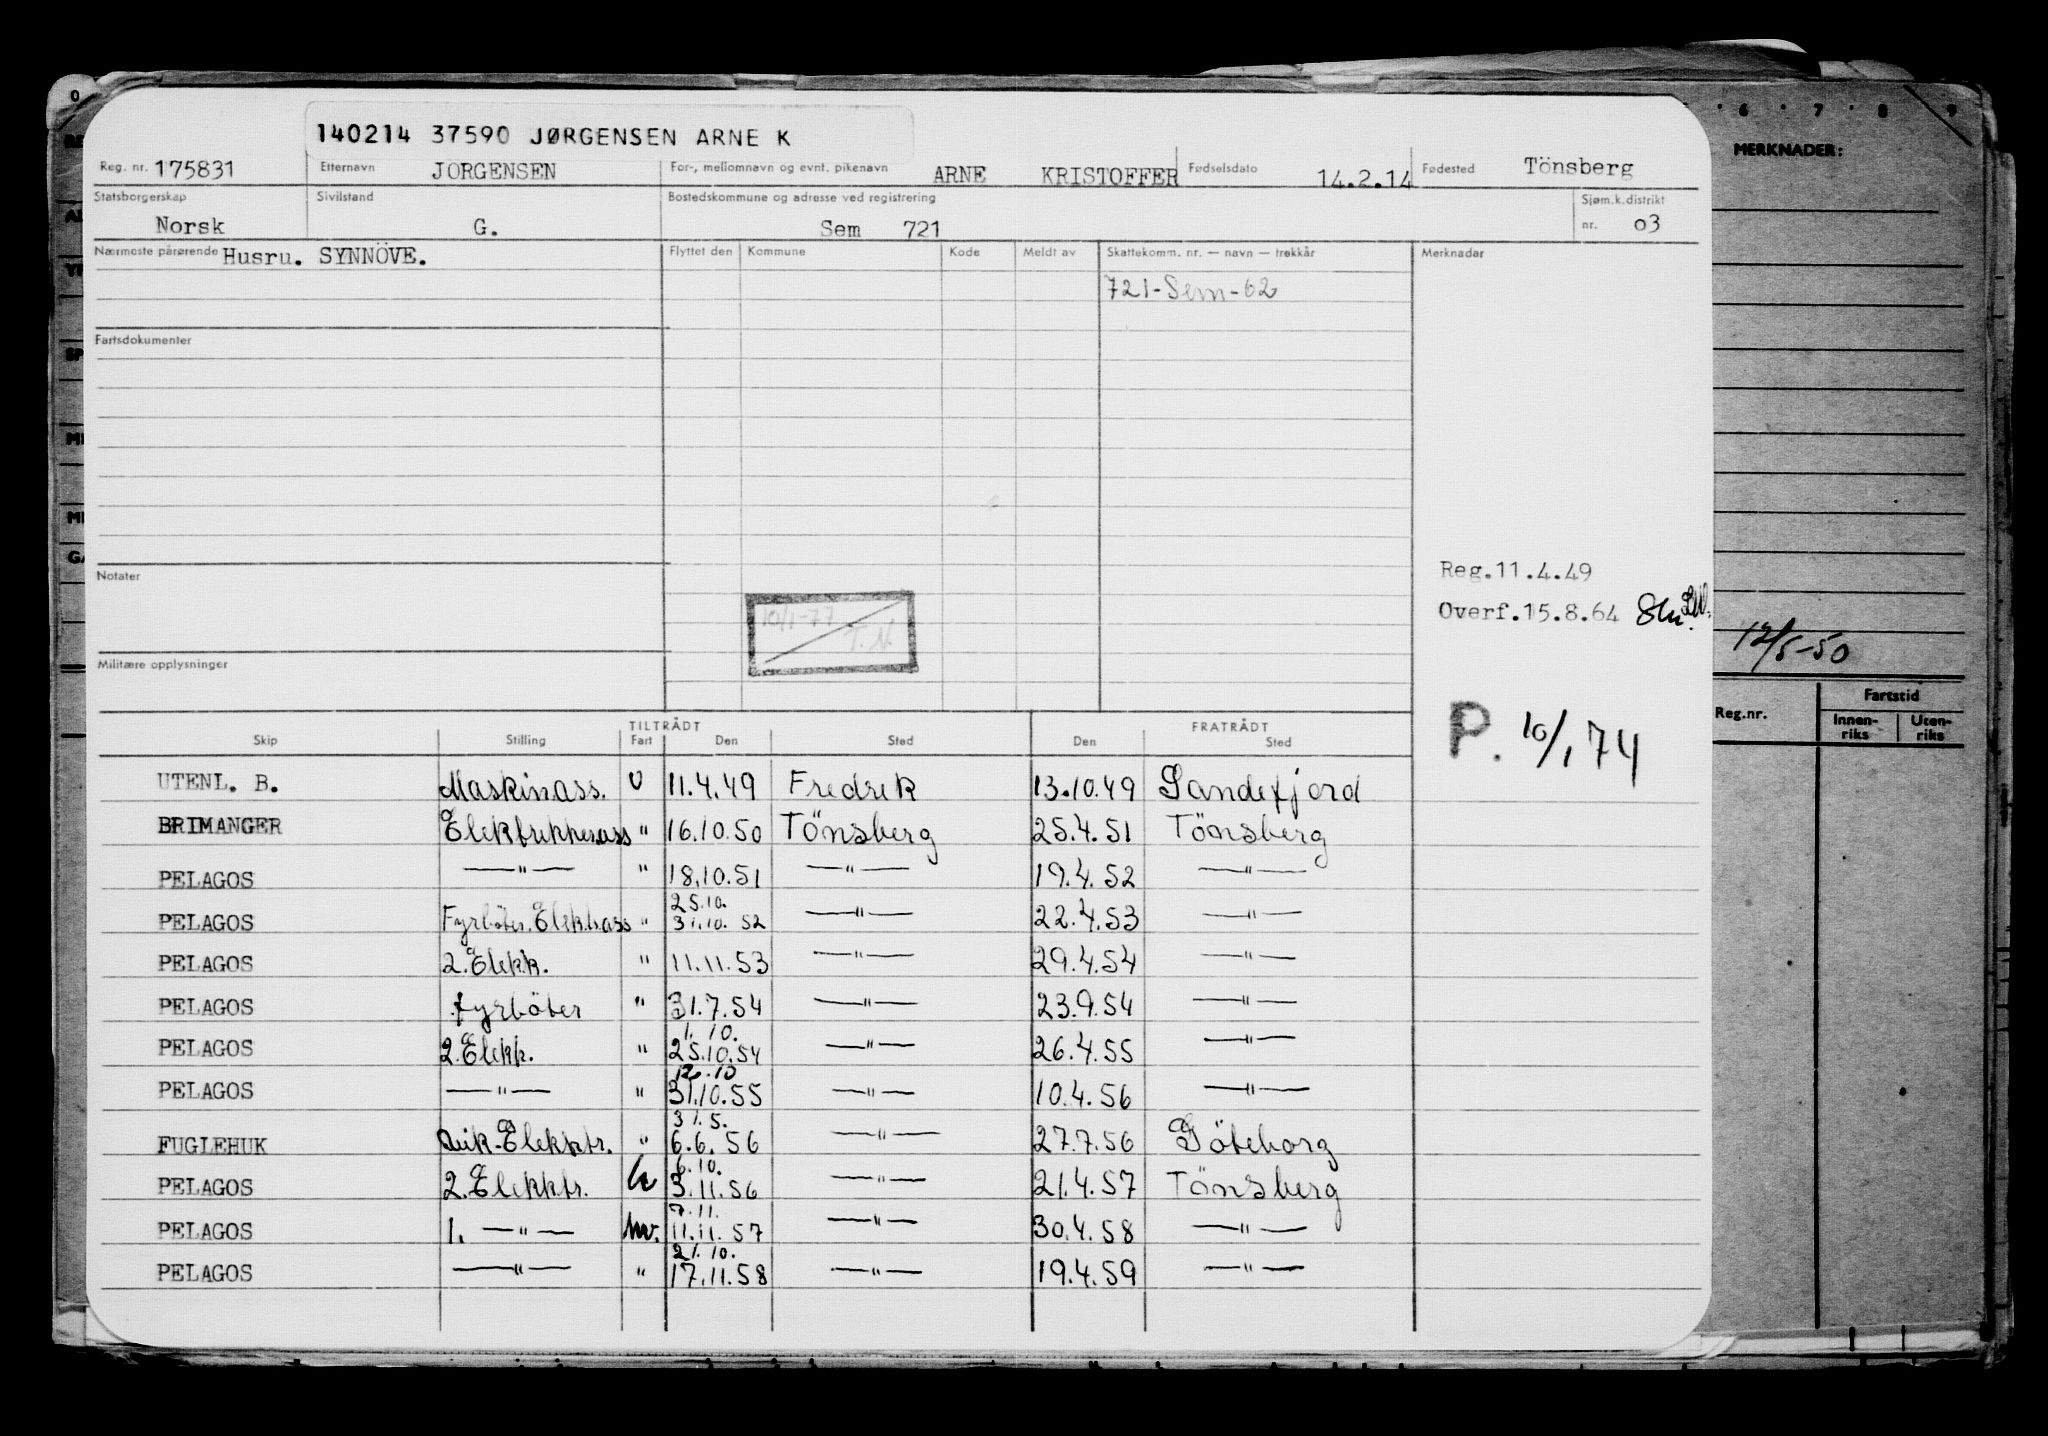 140214 37590 JØRGENSEN ARNE K
Reg. nr. 175831 Etternavn JORGENSEN For-, mellomnavn og evnt. pikenavn ARNE KRISTOFFER Fødselsdato 14.2.14 Fødested Tönsberg
Statsborgerskap Norsk Sivilstand G. Bostedskommune og adresse ved registrering Sem 721 Sjøm.k.distrikt nr. 03
Nærmeste pårørende Husru. SYNNÖVE. Flyttet den Kommune Kode Meldt av Skattekomm. nr. — navn — trekkår Merknader
721-Sem-62
Fartsdokumenter
Notater
10/1-77
T.N.
Militære opplysninger
Reg.11.4.49
Overf.15.8.64
P. 10/1 74
TILTRÅDT FRATRÅDT
Skip Stilling Fart Den Sted Den Sted
UTENL. B. Maskinass. U 11.4.49 Fredrik 13.10.49 Sandefjord
BRIMANGER Elektrikkerass " 16.10.50 Tönsberg 25.4.51 Tönsberg
PELAGOS —"— " 18.10.51 —"— 19.4.52 —"—
25.10.
PELAGOS Fyrböter. Elektr.ass " 31.10.52 —"— 22.4.53 —"—
PELAGOS 2. Elekk. " 11.11.53 —"— 29.4.54 —"—
PELAGOS fyrböter " 31.7.54 —"— 23.9.54 —"—
1.10.
PELAGOS 2. Elekk. " 25.10.54 —"— 26.4.55 —"—
12.10
PELAGOS —"— " 31.10.55 —"— 10.4.56 —"—
31.5.
FUGLEHUK Elekktr. " 6.6.56 —"— 27.7.56 Göteborg
6.10.
PELAGOS 2. Elekktr. 3.11.56 —"— 21.4.57 Tönsberg
7.11.
PELAGOS 1. —"— hv. 11.11.57 —"— 30.4.58 —"—
21.10.
PELAGOS —"— " 17.11.58 —"— 19.4.59 —"—
6 7 8 9
MERKNADER:
12/5-50
Reg.nr. Fartstid
Innen-riks Uten-riks